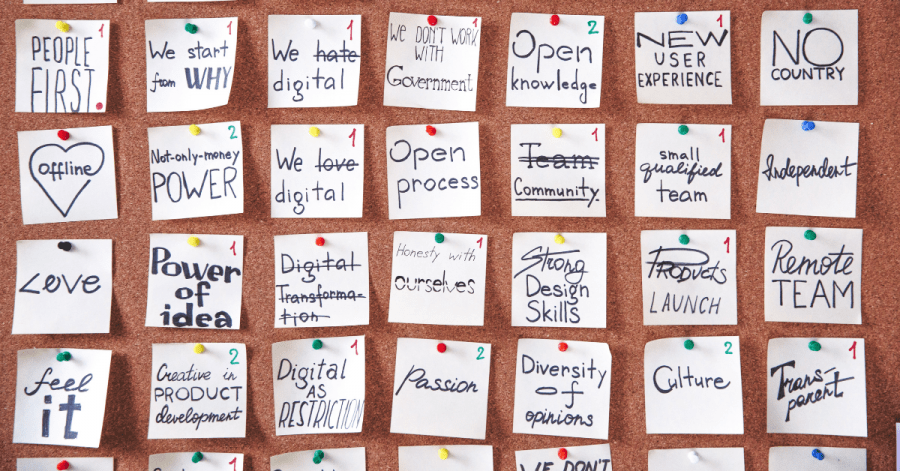 PEOPLE 1
FIRST.
We start 1
from WHY
We hate 1
digital
We DON'T WORK 1
WITH
Government
Open 2
knowledge
NEW 1
USER
EXPERIENCE
NO
COUNTRY
Offline
Not-only-money 2
POWER
We love 1
digital
Open
process
Team 1
Community.
small 1
qualified
team
Independent
LOVE
Power 1
of
idea
Digital
Transforma-
tion
Honesty with 1
ourselves
Strong
Design
Skills
Products 1
LAUNCH
Remote
TEAM
feel
it
Creative in 2
PRODUCT
development
Digital 1
AS
RESTRICTION
Passion 2
Diversity
of
opinions
Culture 2
Trans- 1
parent
1
1
WE DON'T